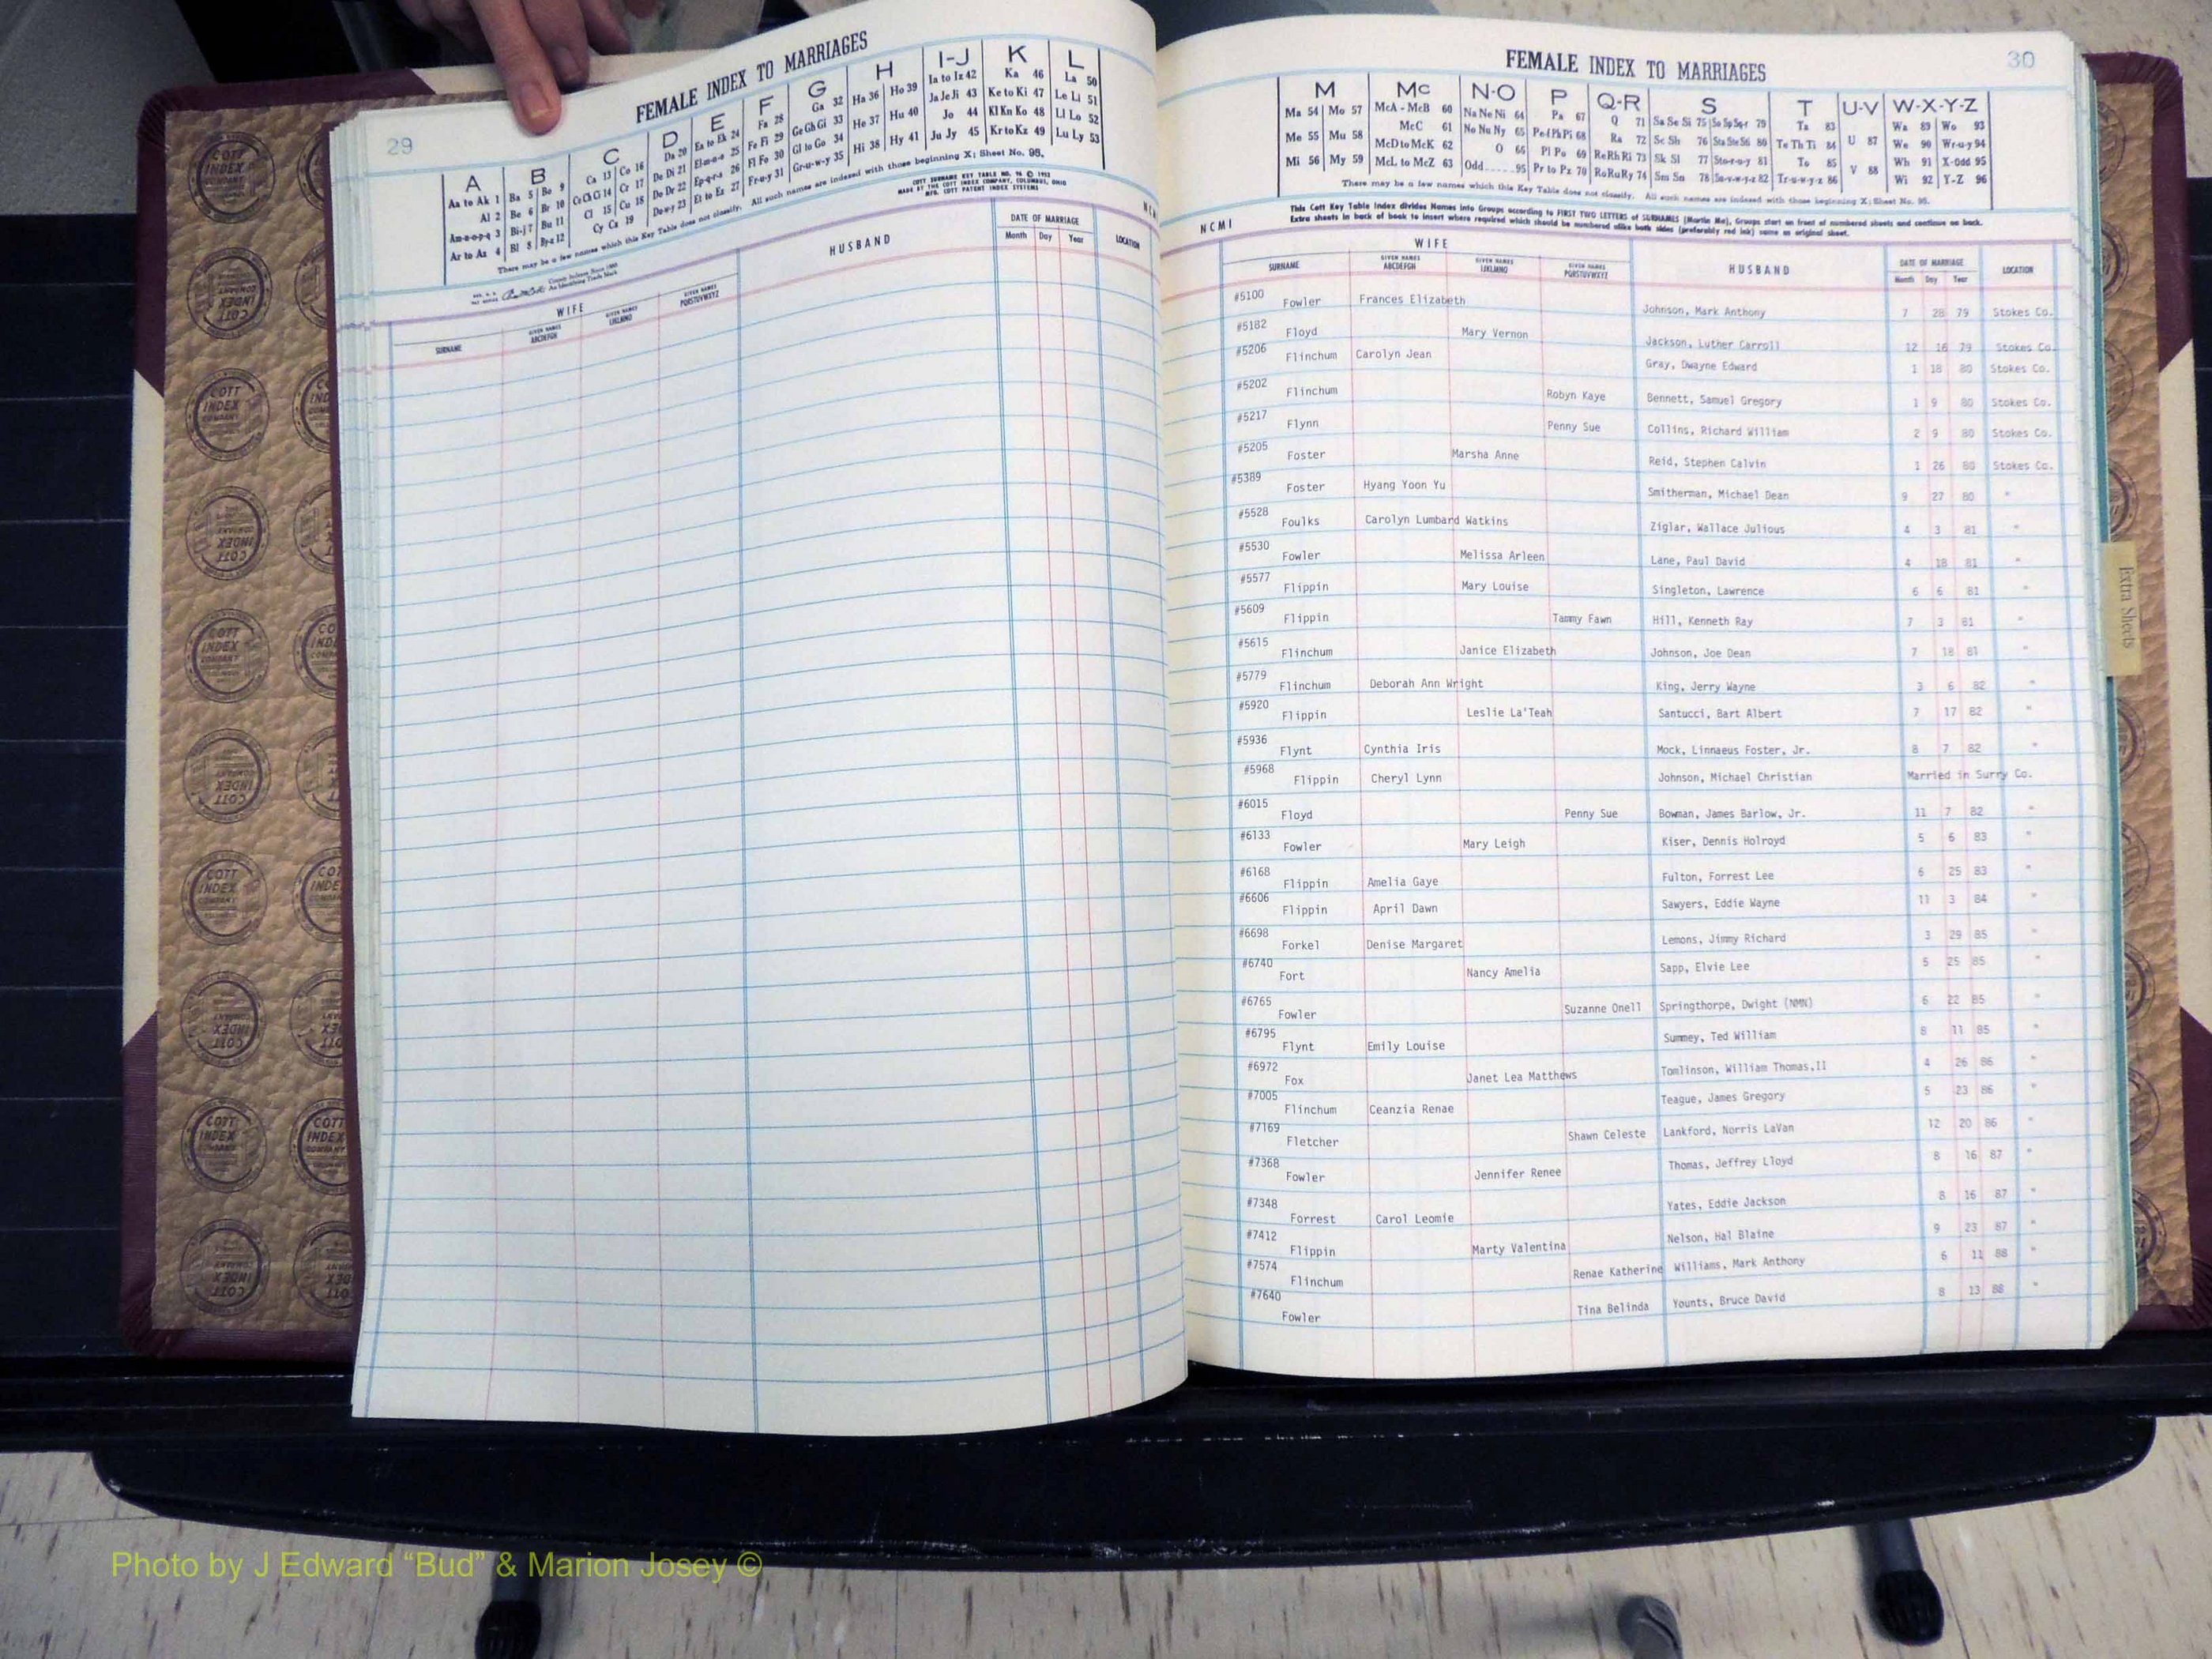 29
FEMALE INDEX TO MARRIAGES
A B C D E F G H I-J K L
Aa to Ak 1 Ba 5 Bo 9 Ca 13 Co 16 Da 20 Ea to Ek 24 Fa 28 Ga 32 Ha 36 Ho 39 Ia to Iz 42 Ka 46 La 50
Al 2 Be 6 Br 10 Ce Ch Ci 14 Cr 17 De Di 21 El-m-n-o 25 Fe Fi 29 Ge Gh Gi 33 He 37 Hu 40 Ja Je Ji 43 Ke to Ki 47 Le Li 51
Am-n-o-p-q 3 Bi-j 7 Bu 11 Cl 15 Cu 18 Do Dr 22 Ep-q-r-s 26 Fl Fo 30 Gl to Go 34 Hi 38 Hy 41 Jo 44 Kl Kn Ko 48 Ll Lo 52
Ar to Az 4 Bl 8 By-z 12 Cy Cz 19 Du-w-y 23 Et to Ez 27 Fr-u-y 31 Gr-u-w-y 35 Ju Jy 45 Kr to Kz 49 Lu Ly 53
There may be a few names which this Key Table does not classify. All such names are indexed with those beginning X; Sheet No. 95.
COTT SURNAME KEY TABLE NO. 96 © 1952
MADE BY THE COTT INDEX COMPANY, COLUMBUS, OHIO
MFG. COTT PATENT INDEX SYSTEMS
WIFE HUSBAND DATE OF MARRIAGE LOCATION
SURNAME GIVEN NAMES ABCDEFGH GIVEN NAMES IJKLMNO GIVEN NAMES PQRSTUVWXYZ Month Day Year
FEMALE INDEX TO MARRIAGES 30
M Mc N-O P Q-R S T U-V W-X-Y-Z
Ma 54 Mo 57 McA - McB 60 Na Ne Ni 64 Pa 67 Q 71 Sa Se Si 75 So Sp Sq-r 79 Ta 83 U 87 Wa 89 Wo 93
Me 55 Mu 58 McC 61 No Nu Ny 65 Pe-f Ph Pi 68 Ra 72 Sc Sh 76 Sta Ste Sti 80 Te Th Ti 84 V 88 We 90 Wr-u-y 94
Mi 56 My 59 McD to McK 62 O 66 Pl Po 69 Re Rh Ri 73 Sk Sl 77 Sto-r-u-y 81 To 85 Wh 91 X-Odd 95
McL to McZ 63 Odd.....95 Pr to Pz 70 Ro Ru Ry 74 Sm Sn 78 Su-v-w-y-z 82 Tr-u-w-y-z 86 Wi 92 Y-Z 96
There may be a few names which this Key Table does not classify. All such names are indexed with those beginning X; Sheet No. 95.
This Cott Key Table Index divides Names into Groups according to FIRST TWO LETTERS of SURNAMES (Martin Ma), Groups start on front of numbered sheets and continue on back.
Extra sheets in back of book to insert where required which should be numbered alike both sides (preferably red ink) same as original sheet.
NCMI
WIFE HUSBAND DATE OF MARRIAGE LOCATION
SURNAME GIVEN NAMES ABCDEFGH GIVEN NAMES IJKLMNO GIVEN NAMES PQRSTUVWXYZ Month Day Year
#5100 Fowler Frances Elizabeth Johnson, Mark Anthony 7 28 79 Stokes Co.
#5182 Floyd Mary Vernon Jackson, Luther Carroll 12 16 79 Stokes Co.
#5206 Flinchum Carolyn Jean Gray, Dwayne Edward 1 18 80 Stokes Co.
#5202 Flinchum Robyn Kaye Bennett, Samuel Gregory 1 9 80 Stokes Co.
#5217 Flynn Penny Sue Collins, Richard William 2 9 80 Stokes Co.
#5205 Foster Marsha Anne Reid, Stephen Calvin 1 26 80 Stokes Co.
#5389 Foster Hyang Yoon Yu Smitherman, Michael Dean 9 27 80 "
#5528 Foulks Carolyn Lumbard Watkins Ziglar, Wallace Julious 4 3 81 "
#5530 Fowler Melissa Arleen Lane, Paul David 4 18 81 "
#5577 Flippin Mary Louise Singleton, Lawrence 6 6 81 "
#5609 Flippin Tammy Fawn Hill, Kenneth Ray 7 3 81 "
#5615 Flinchum Janice Elizabeth Johnson, Joe Dean 7 18 81 "
#5779 Flinchum Deborah Ann Wright King, Jerry Wayne 3 6 82 "
#5920 Flippin Leslie La'Teah Santucci, Bart Albert 7 17 82 "
#5936 Flynt Cynthia Iris Mock, Linnaeus Foster, Jr. 8 7 82 "
#5968 Flippin Cheryl Lynn Johnson, Michael Christian Married in Surry Co.
#6015 Floyd Penny Sue Bowman, James Barlow, Jr. 11 7 82 "
#6133 Fowler Mary Leigh Kiser, Dennis Holroyd 5 6 83 "
#6168 Flippin Amelia Gaye Fulton, Forrest Lee 6 25 83 "
#6606 Flippin April Dawn Sawyers, Eddie Wayne 11 3 84 "
#6698 Forkel Denise Margaret Lemons, Jimmy Richard 3 29 85 "
#6740 Fort Nancy Amelia Sapp, Elvie Lee 5 25 85 "
#6765 Fowler Suzanne Onell Springthorpe, Dwight (NMN) 6 22 85 "
#6795 Flynt Emily Louise Summey, Ted William 8 11 85 "
#6972 Fox Janet Lea Matthews Tomlinson, William Thomas,II 4 26 86 "
#7005 Flinchum Ceanzia Renae Teague, James Gregory 5 23 86 "
#7169 Fletcher Shawn Celeste Lankford, Norris LaVan 12 20 86 "
#7368 Fowler Jennifer Renee Thomas, Jeffrey Lloyd 8 16 87 "
#7348 Forrest Carol Leomie Yates, Eddie Jackson 8 16 87 "
#7412 Flippin Marty Valentina Nelson, Hal Blaine 9 23 87 "
#7574 Flinchum Renae Katherine Williams, Mark Anthony 6 11 88 "
#7640 Fowler Tina Belinda Younts, Bruce David 8 13 88 "
Extra Sheets
COTT INDEX COMPANY
Photo by J Edward “Bud” & Marion Josey ©